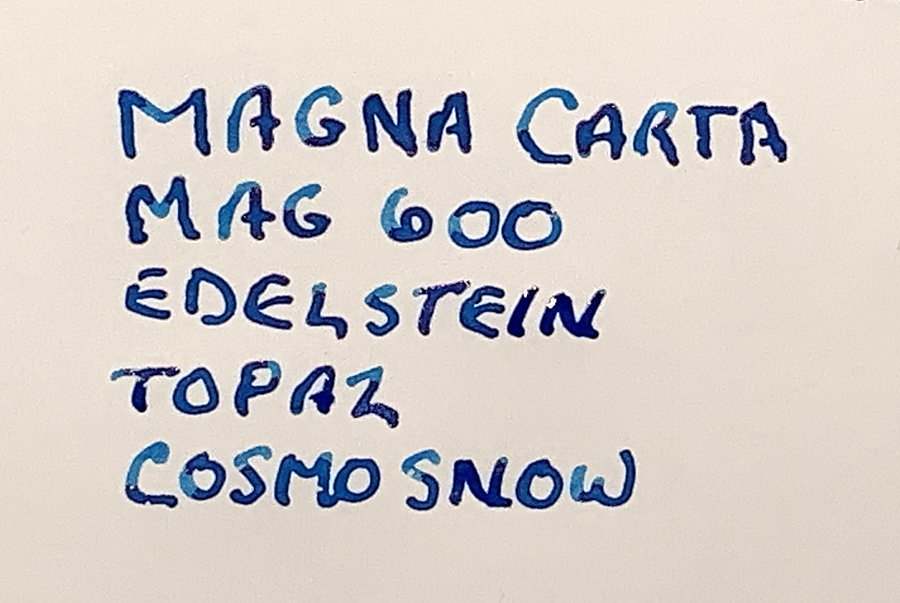 MAGNA CARTA
MAG 600
EDELSTEIN
TOPAZ
COSMO SNOW